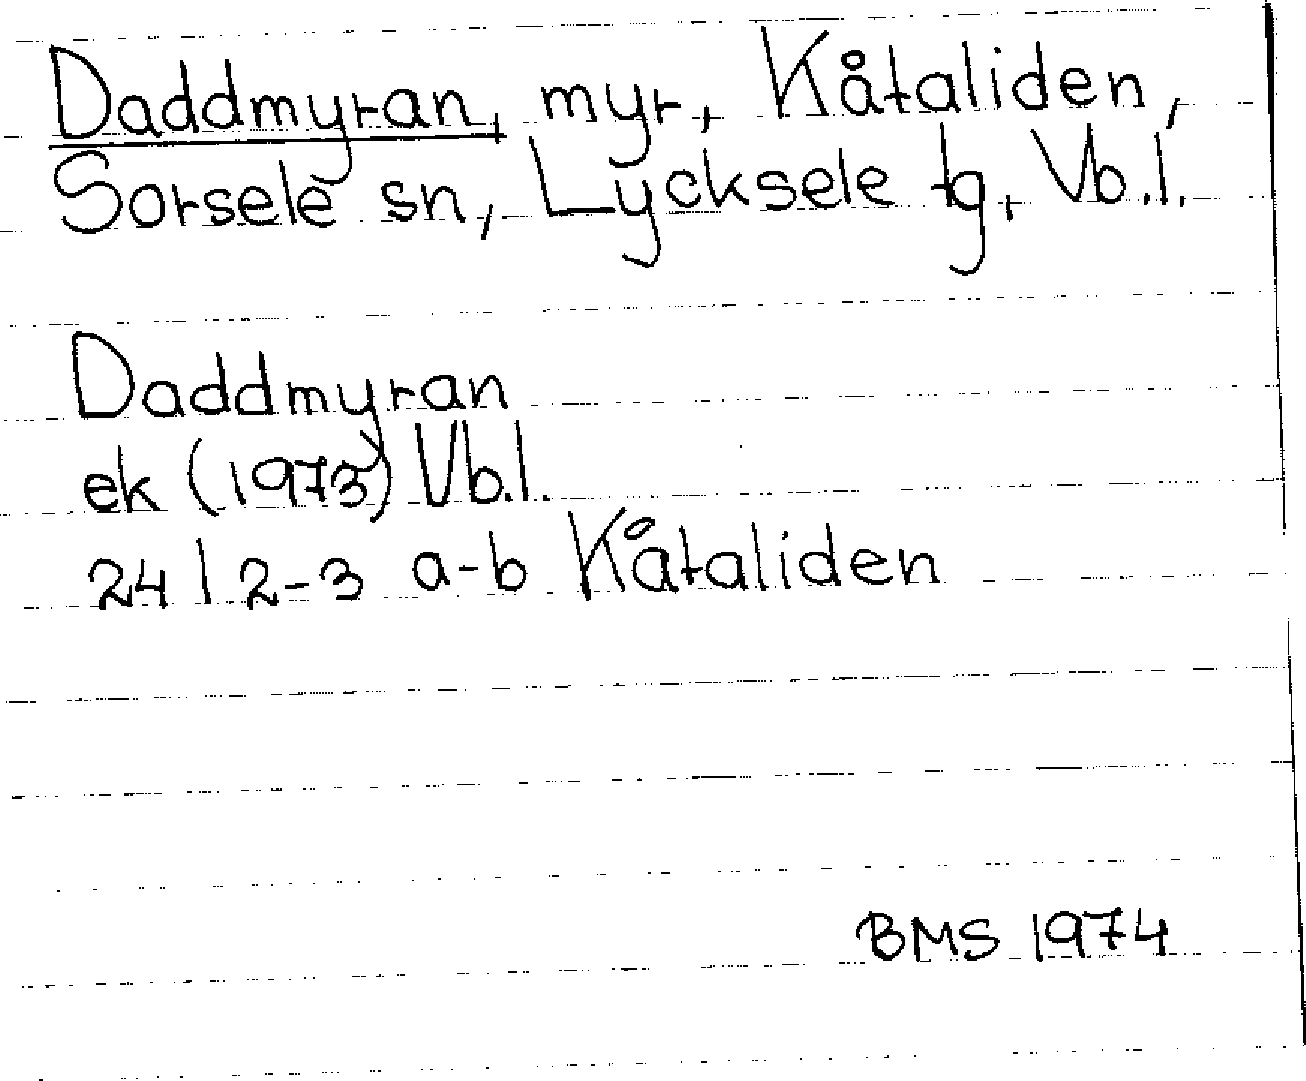 Daddmyran, myr, Kåtaliden,
Sorsele sn, Lycksele tg, Vb.l.
Daddmyran
ek (1973) Vb.l.
24 I 2-3 a-b Kåtaliden
BMS 1974